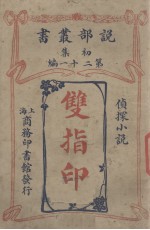 說部叢書
初集
第二十一編
偵探小說
雙指印
上海商務印書館發行